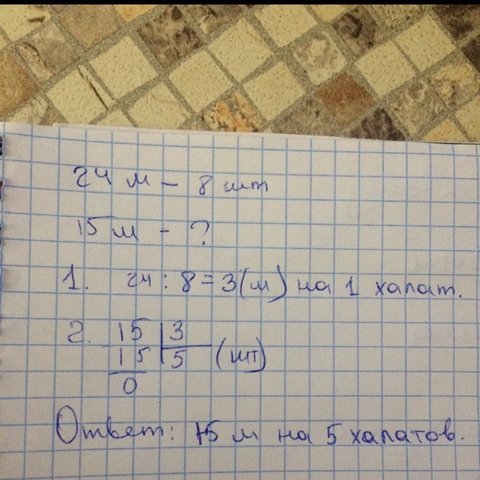 24 м – 8 шт
15 м – ?
1. 24 : 8 = 3 (м) на 1 халат.
2. 15 | 3
15 | 5 (шт)
0
Ответ: 15 м на 5 халатов.